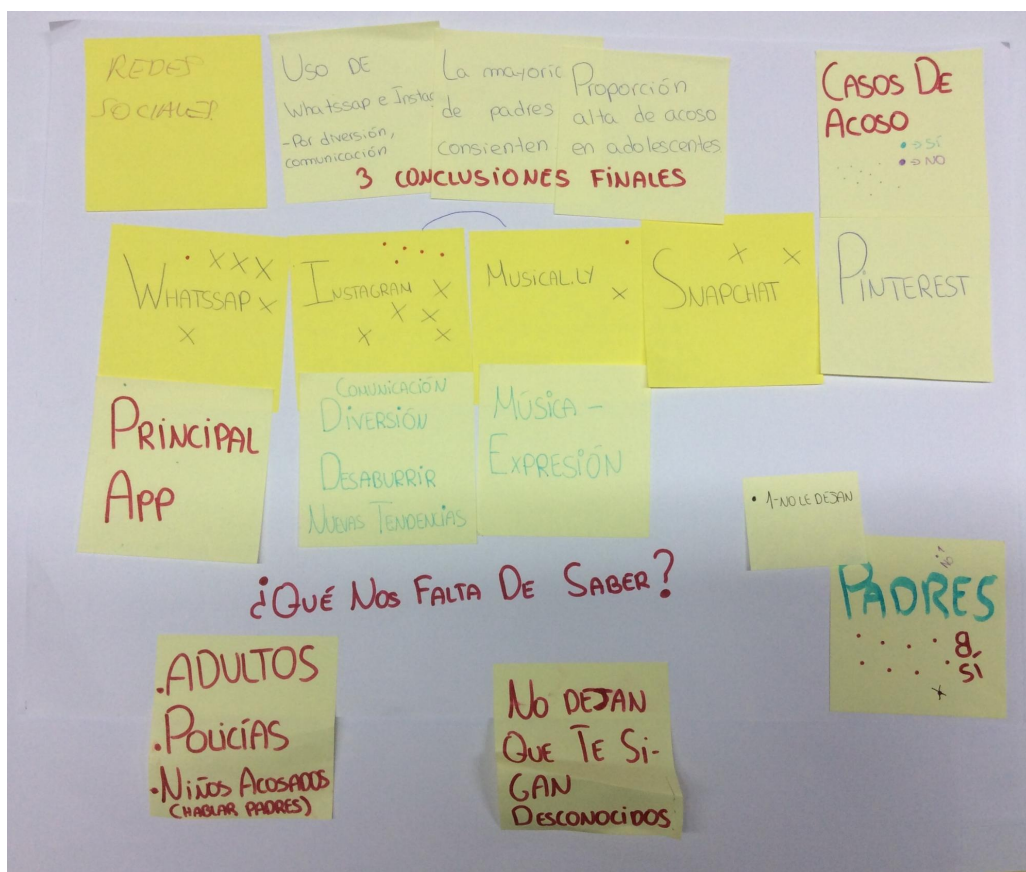 REDES
SOCIALES
USO DE
Whatssap e Instar
-Por diversión,
comunicación
La mayoric
de padres
consienten
Proporción
alta de acoso
en adolescentes
3 CONCLUSIONES FINALES
CASOS DE
ACOSO
• → SÍ
• → NO
WHATSSAP
INSTAGRAM
MUSICAL.LY
SNAPCHAT
PINTEREST
PRINCIPAL
APP
COMUNICACIÓN
DIVERSIÓN
DESABURRIR
NUEVAS TENDENCIAS
MÚSICA -
EXPRESIÓN
• 1-NO LE DEJAN
NO 1
PADRES
8
SÍ
¿QUÉ NOS FALTA DE SABER?
.ADULTOS
.POLICÍAS
.NIÑOS ACOSADOS
(HABLAR PADRES)
NO DEJAN
QUE TE SI-
GAN
DESCONOCIDOS